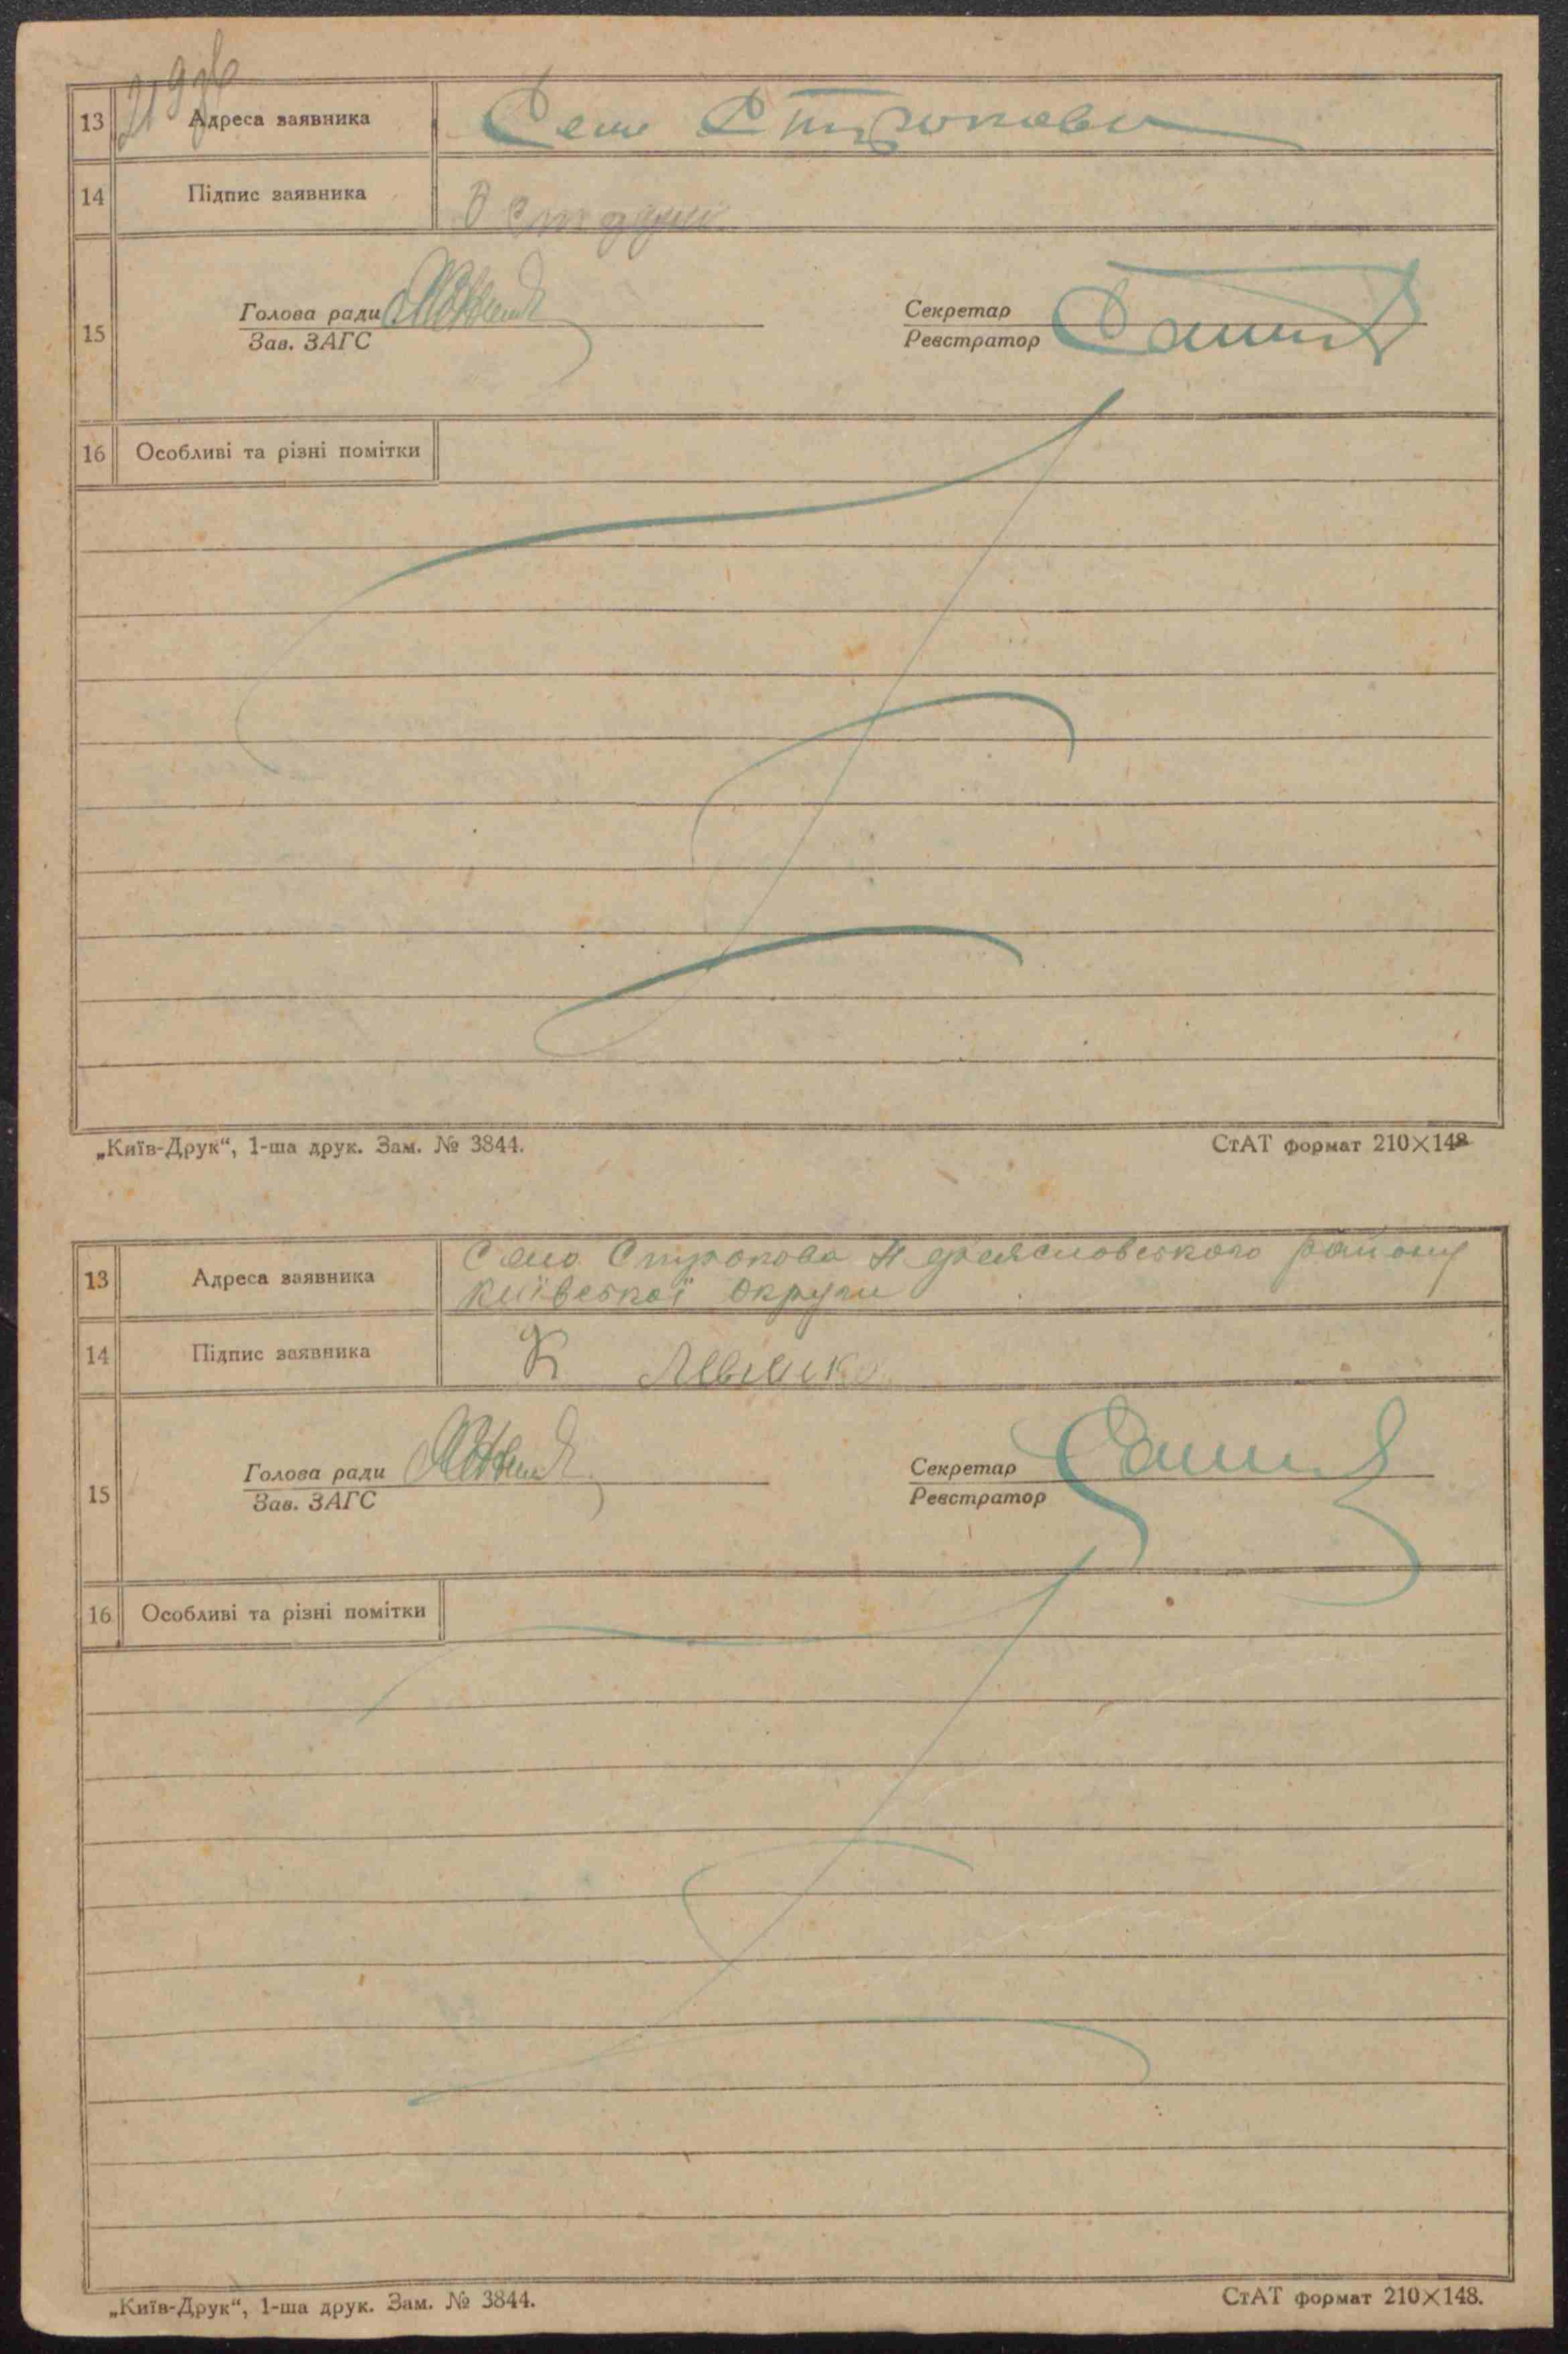 13 Адреса заявника Село Строкова
14 Підпис заявника
15 Голова ради Секретар
Зав. ЗАГС Реєстратор
16 Особливі та різні помітки
„Київ-Друк“, 1-ша друк. Зам. № 3844. СтАТ формат 210×148
13 Адреса заявника Село Строкова району
Київської Округи
14 Підпис заявника К
15 Голова ради Секретар
Зав. ЗАГС Реєстратор
16 Особливі та різні помітки
„Київ-Друк“, 1-ша друк. Зам. № 3844. СтАТ формат 210×148.